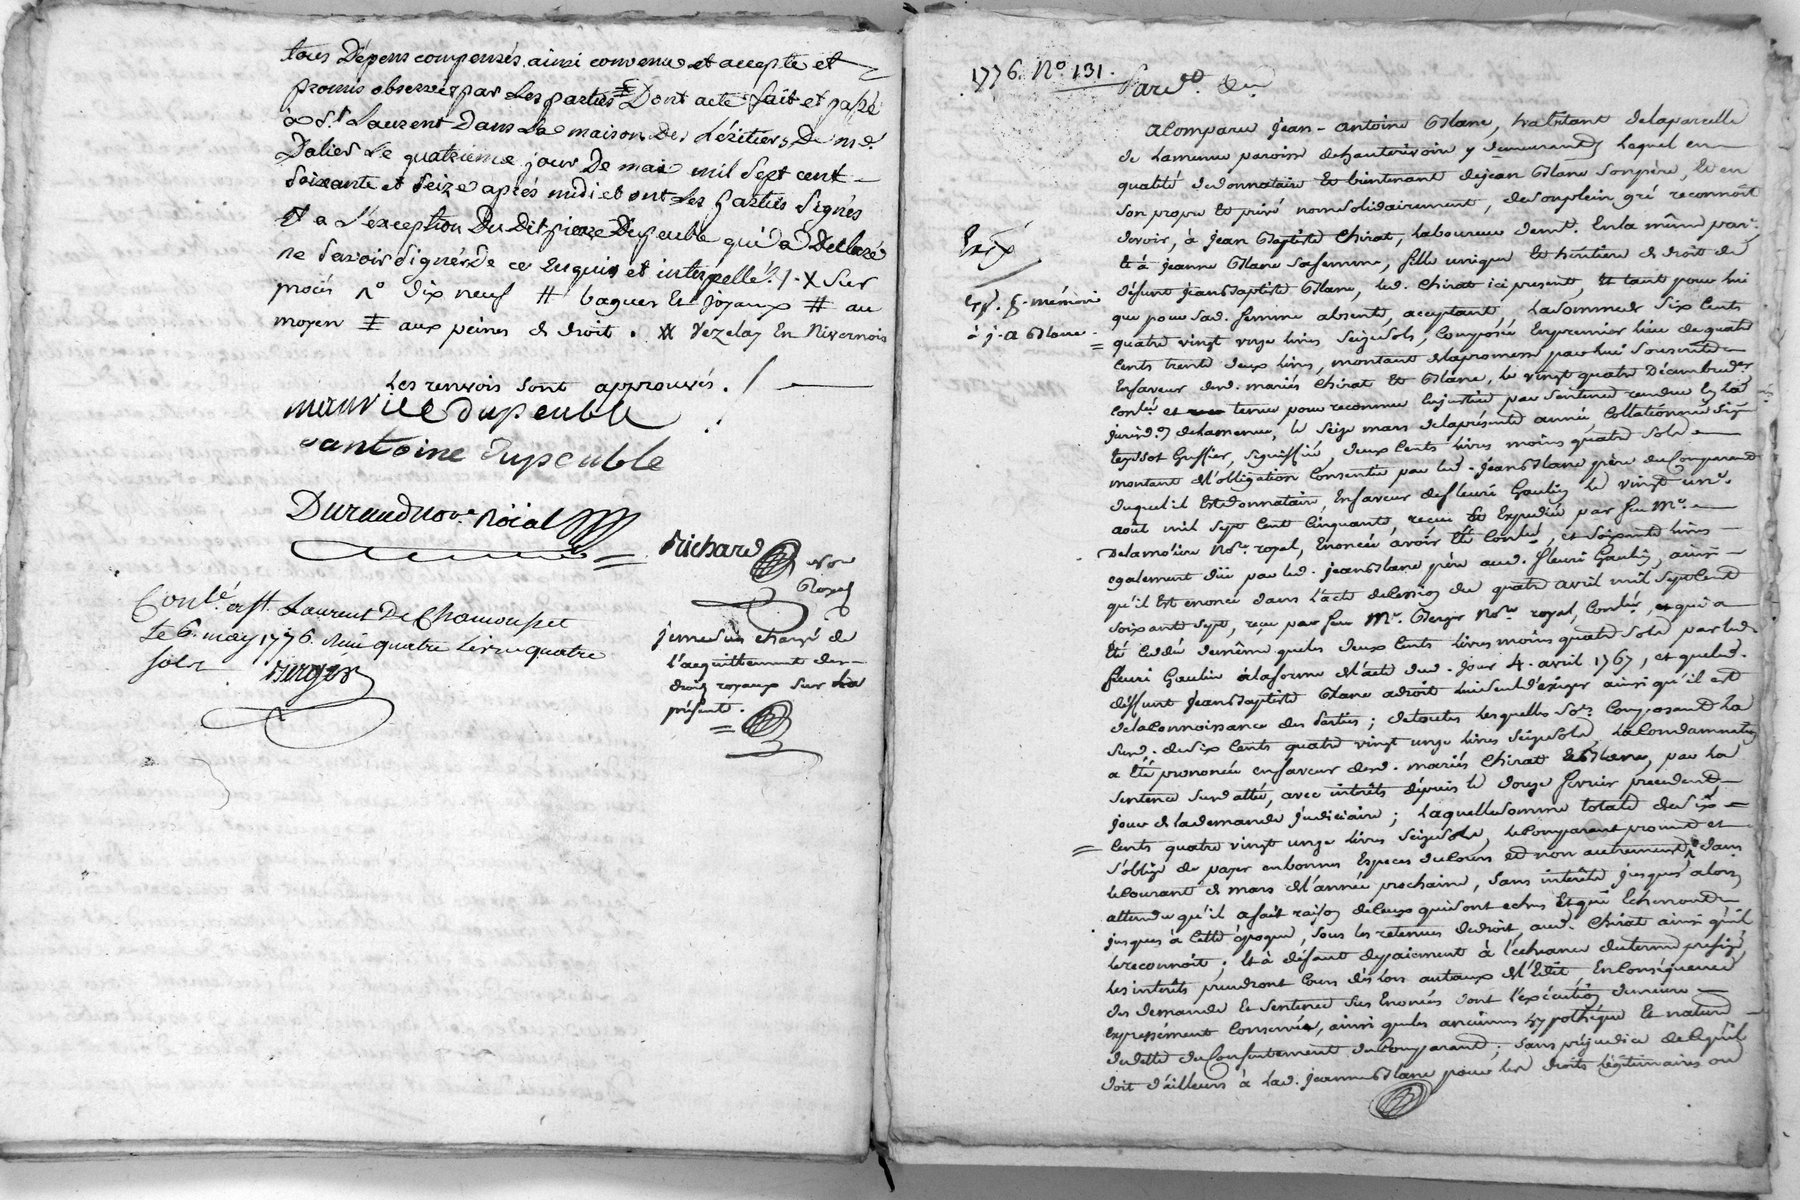 tous Dépens compensés. ainsi convenu et accepté et
promis observer par Les parties Dont acte fait et passé
a St. Laurent Dans La maison Des héritiers De md.
Dalier Le quatrieme jour De mai mil Sept cent
Soixante et Seize aprés midi et ont Les parties Signés
a L'exception Du Dit pierre Dupeuble qui a Déclaré
ne Savoir Signer de ce Enquis et interpellé. X Sur
procés no dix neuf # bagues Et joyaux # au
moyen ‡ aux peines de droit. Vezelay En Nivernois
Les renvois sont approuvés.
maurice dupeuble
antoine Dupeuble
Durand nore. Roial
Richard
Nore
Royal
Contlé. a St. Laurent De Chamousset
Le 6. may 1776. Reçu quatre Livres quatre
sols Berger
je me suis chargé de
l'acquittement des
droits royaux sur La
présente.
1776. No. 131.
Pard. De.
A Comparu jean-antoine Blanc, habitant de la parcelle
de Lamenue paroisse de hauterivoire y demeurant, lequel en
qualité de donnataire et bientenant de jean Blanc Son père, et en
Son propre et privé nom solidairement, de son plein gré reconnoît
devoir, à jean Baptiste Chirat, Laboureur demt. En la même par.
et à jeanne Blanc Sa femme, fille unique et héritiere de droit de
défunt jean Baptiste Blanc, led. Chirat ici présent, et tant pour lui
Exp. p. mémoire
à j. a Blanc
que pour sad. femme absente, acceptant, La Somme de Six Cents
quatre vingt onze livres Seize Sols, Composée En premier lieu de quatre
Cents trente deux livres, montant de la promesse par lui Souscrite
En faveur desd. mariés Chirat et Blanc, le vingt quatre Décembre der.
Conlée et tenue pour reconnue En justice par Sentence rendue En la
jurisd.on de Lamenue, le Seize mars de la présente année, Collationnée Signé
Greffier, Signiffiée, deux Cents livres moins quatre Sols
montant de l'obligation Consentie par led. jean Blanc père du Comparant
duquel il Est donnataire, En faveur de fleuri Goulin le vingt un.
août mil Sept Cent Cinquante, reçue et Expediée par feu Me.
Delamotte Nore. royal, Enoncée avoir Eté Conlée, et Soixante livres
egalement due par led. jean Blanc père aud. fleuri Goulin, ainsi
qu'il Est enoncé dans l'acte de Cession du quatre avril mil Sept Cent
Soixante Sept, reçu par feu Me. Berger Nore. royal, Conlée, et qui a
Eté Cedée de même que les deux Cents livres moins quatre Sols par led.
fleuri Goulin à la forme de l'acte dud. jour 4. avril 1767, et que led.
déffunt jean Baptiste Blanc a droit lui seul d'exiger ainsi qu'il est
de la Connoissance des Parties; de toutes lesquelles Ses. Composant La
Susd. de Six Cents quatre vingt onze livres Seize Sols, La Condamnation
a Eté prononcée en faveur desd. mariés Chirat et Blanc, par La
Sentence Susdattée, avec intérêts dépuis le douze fevrier precedent
jour de la demande judiciaire; Laquelle Somme totale de Six
Cents quatre vingt onze livres Seize Sols, le Comparant promet et
s'oblige de payer en bonnes Especes du Cours et non autrement, dans
le Courant de mars de l'année prochaine, Sans intérêts jusques alors
attendu qu'il a fait raison de Ceux qui sont echus Et qui Echerront
jusques à Cette époque, Sous les retenues de droit, aud. Chirat ainsi qu'il
le reconnoît; Et à défaut de paiement à l'echeance du terme prefixé
Les intérêts prendront Cours dès lors au taux de l'Edit En Conséquence
des demande et Sentence Sus Enoncées dont l'exécution demeure
expressément Conservée, ainsi que les anciennes hypothèque et nature
de dette du Consentement du Comparant; Sans préjudice de Ce qu'il
doit d'ailleurs à Lad. jeanne Blanc pour les droits légitimaires ou